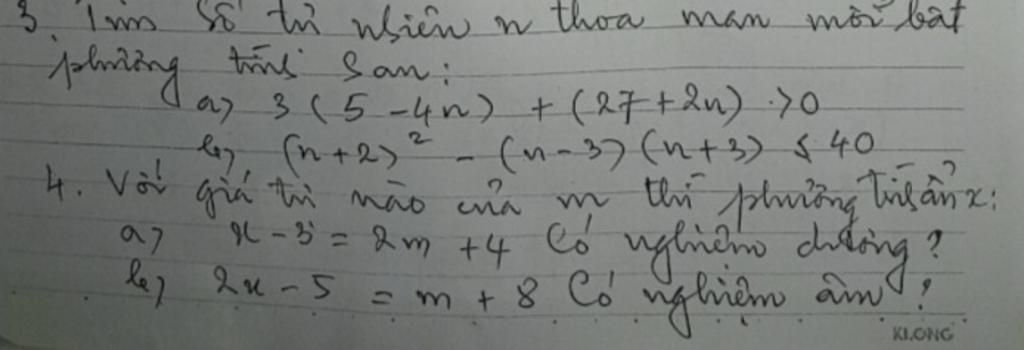 3. Tìm số tự nhiên n thoả mãn mỗi bất
phương trình sau:
a) 3(5-4n) + (27+2n) > 0
b) (n+2)² - (n-3)(n+3) ≤ 40
4. Với giá trị nào của m thì phương trình ẩn x:
a) x-3 = 2m+4 Có nghiệm dương?
b) 2x-5 = m+8 Có nghiệm âm?
KLONG